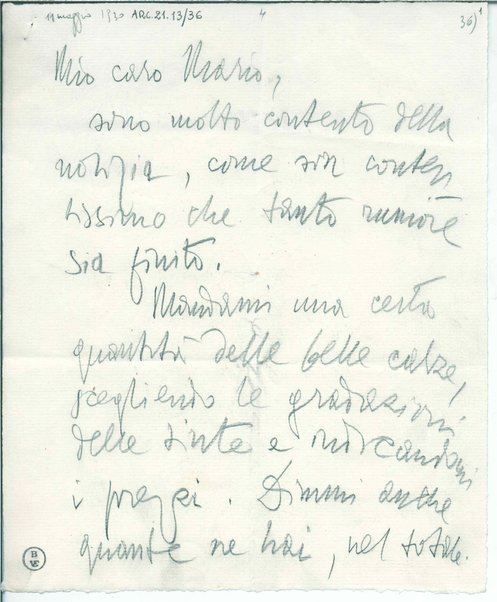 11 maggio 1930 ARC.21.13/36 36)¹
Mio caro Mario,
sono molto contento della
notizia, come son conten
tissimo che tanto rumore
sia finito.
Mandami una certa
quantità delle belle calze,
scegliendo le gradazioni
delle tinte e indicandomi
i prezzi. Dimmi anche
quante ne hai, nel totale.